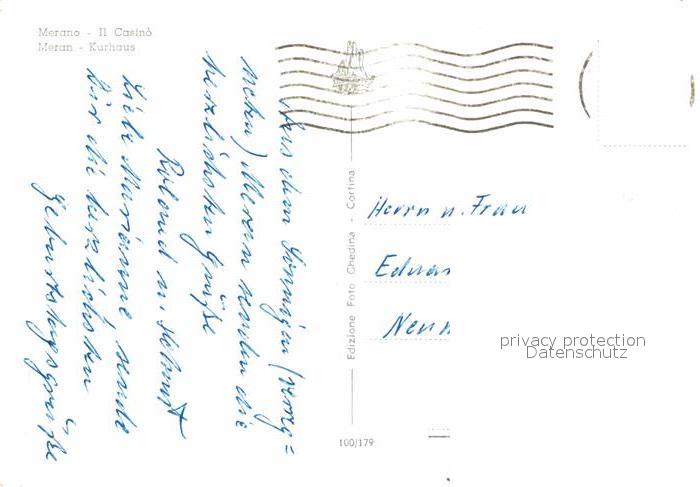 Merano - Il Casinò
Meran - Kurhaus
Aus dem sonnigen (
Meran senden die
herzlichsten Grüße
Roland u.
Liebe Marianne, sende
Dir die herzlichsten
Geburtstagsgrüße
Edizione Foto Ghedina - Cortina
Herrn u. Frau
100/179
privacy protection
Datenschutz